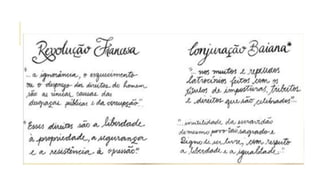 Revolução Francesa
"... a ignorância, o esquecimento
ou o desprezo dos direitos do homem
são as únicas causas das
desgraças públicas e da corrupção"
"Esses direitos são a liberdade
a propriedade, a segurança
e a resistência à opressão."
Conjuração Baiana"
"... nos muitos e repetidos
latrocínios feitos com os
títulos de imposturas, tributos
e direitos que são celebrados"...
"... inutilidade da escravidão
do mesmo povo tão sagrado e
digno de ser livre, com respeito
a liberdade e a igualdade."